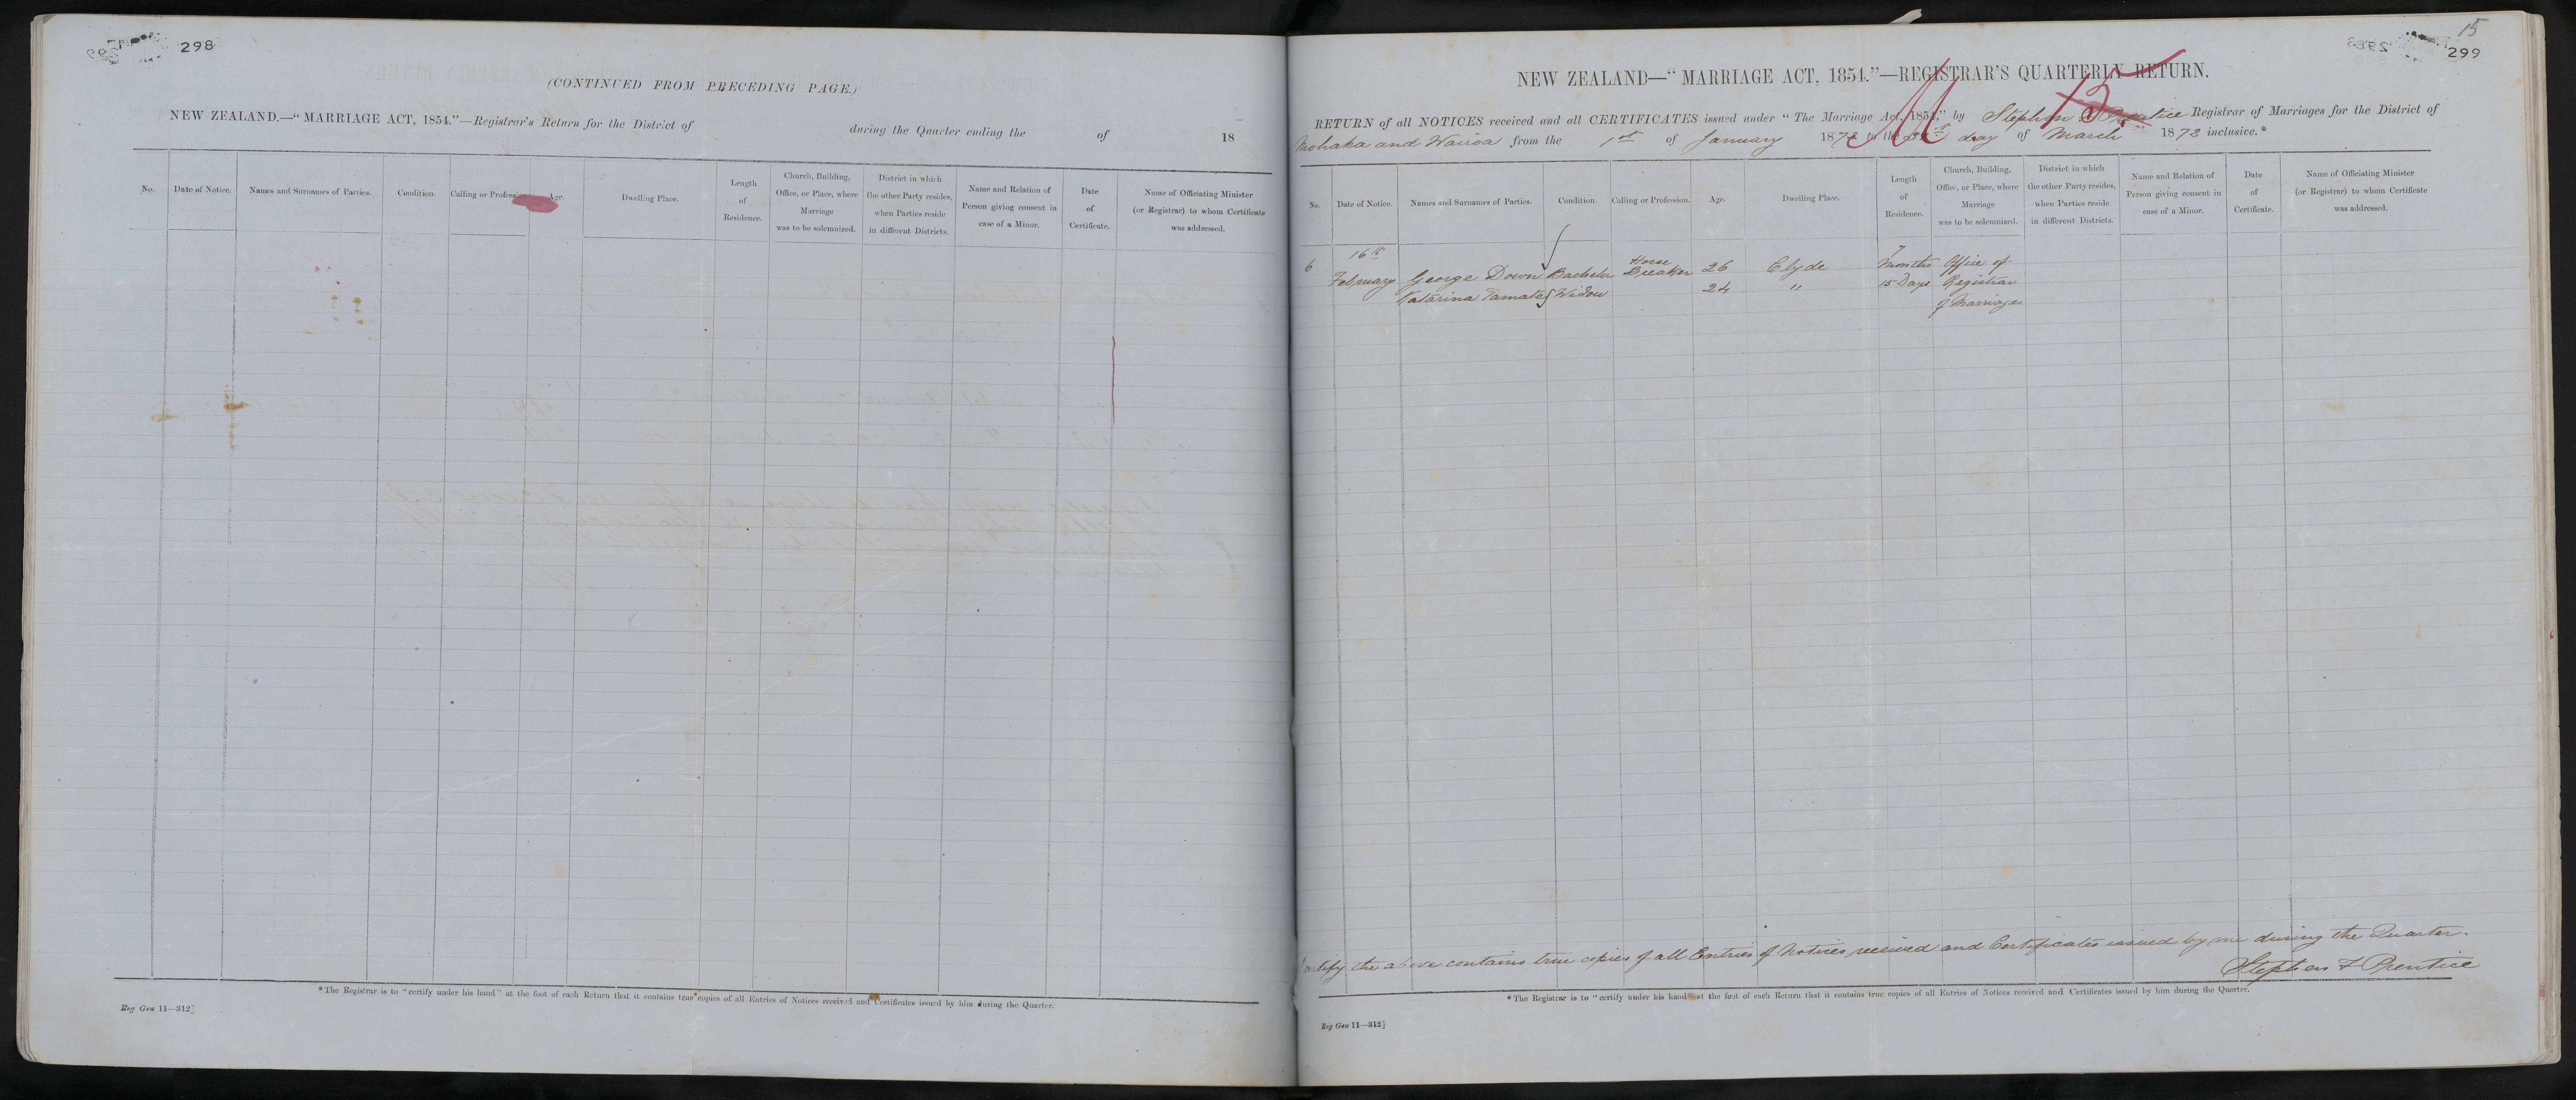 298
(CONTINUED FROM PRECEDING PAGE.)
NEW ZEALAND.—"MARRIAGE ACT, 1854."—Registrar's Return for the District of during the Quarter ending the of 18
No.
Date of Notice.
Names and Surnames of Parties.
Condition.
Calling or Profession.
Age.
Dwelling Place.
Length
of
Residence.
Church, Building,
Office, or Place, where
Marriage
was to be solemnized.
District in which
the other Party resides,
when Parties reside
in different Districts.
Name and Relation of
Person giving consent in
case of a Minor.
Date
of
Certificate.
Name of Officiating Minister
(or Registrar) to whom Certificate
was addressed.
*The Registrar is to "certify under his hand" at the foot of each Return that it contains true copies of all Entries of Notices received and Certificates issued by him during the Quarter.
Reg Gen 11—312]
15
299
NEW ZEALAND—"MARRIAGE ACT, 1854."—REGISTRAR'S QUARTERLY RETURN.
15
RETURN of all NOTICES received and all CERTIFICATES issued under "The Marriage Act, 1854," by Stephen Prentice Registrar of Marriages for the District of
Mohaka and Wairoa from the 1st of January 1872 to the 31st day of March 1872 inclusive.*
No.
Date of Notice.
Names and Surnames of Parties.
Condition.
Calling or Profession.
Age.
Dwelling Place.
Length
of
Residence.
Church, Building,
Office, or Place, where
Marriage
was to be solemnized.
District in which
the other Party resides,
when Parties reside
in different Districts.
Name and Relation of
Person giving consent in
case of a Minor.
Date
of
Certificate.
Name of Officiating Minister
(or Registrar) to whom Certificate
was addressed.
6 16th
February George Down Bachelor Horse Breaker 26 Clyde 7 Months Office of
Katarina Tamate Widow 24 " 15 Days Registrar
of Marriages
certify the above contains true copies of all Entries of Notices received and Certificates issued by me during the Quarter.
Stephen F Prentice
*The Registrar is to "certify under his hand" at the foot of each Return that it contains true copies of all Entries of Notices received and Certificates issued by him during the Quarter.
Reg Gen 11—312]